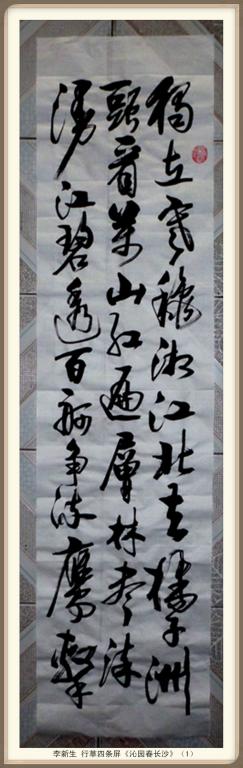 獨立寒秋湘江北去橘子洲
頭看萬山红遍層林尽染
漫江碧透百舸争流鷹擊
李新生 行草四条屏《沁园春长沙》（1）